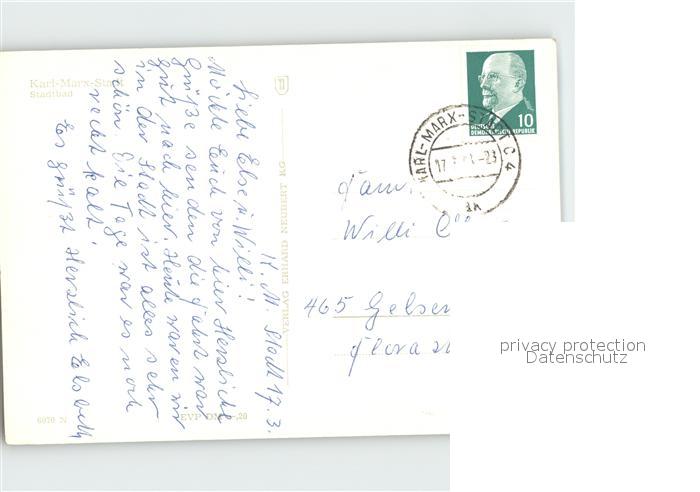 Karl-Marx-Stadt
Stadtbad
K. M. Stadt 17.3.
Liebe Else u. Willi!
Möchte Euch von hier Herzliche
Grüße senden die Fahrt war
gut nach hier. Heute waren wir
in der Stadt ist alles sehr
schön. Die Tage war es noch
recht kalt!
Es grüßt Herzlich Elsbeth
6070 N
EVP DM -,20
VERLAG ERHARD NEUBERT KG
10
DEUTSCHE
DEMOKRATISCHE REPUBLIK
KARL-MARX-STADT C 4
17
-23
Fam
Willi
465 Gelsen
Flora
privacy protection
Datenschutz